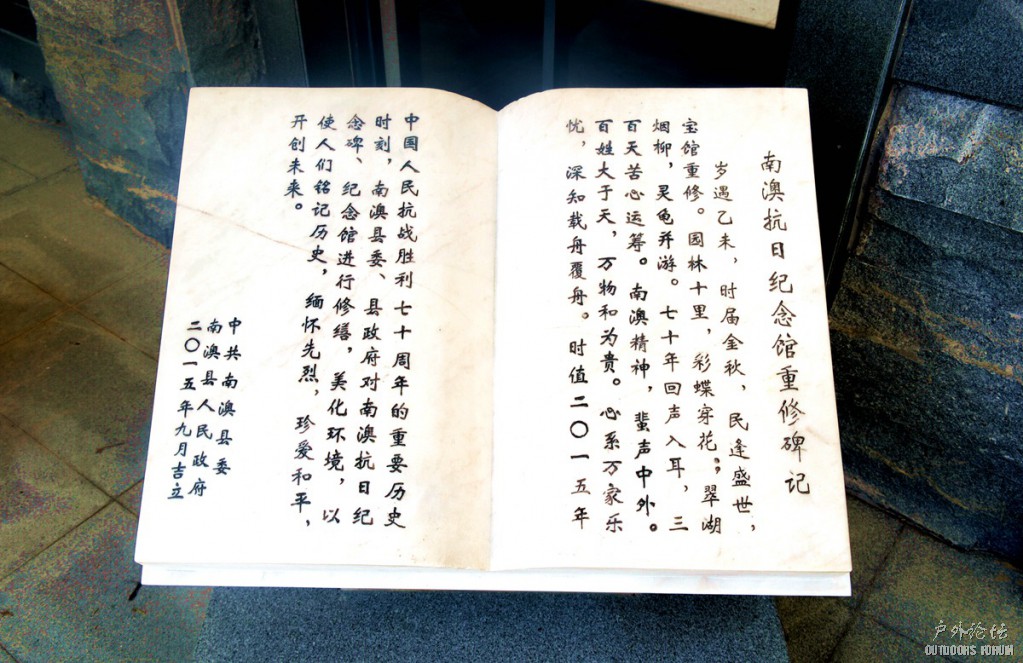 南澳抗日纪念馆重修碑记
岁遇乙未，时届金秋，民逢盛世，
宝馆重修。园林十里，彩蝶穿花；翠湖
烟柳，灵龟并游。七十年回声入耳，三
百天苦心运筹。南澳精神，蜚声中外。
百姓大于天，万物和为贵。心系万家乐
忧，深知载舟覆舟。时值二〇一五年
中国人民抗战胜利七十周年的重要历史
时刻，南澳县委、县政府对南澳抗日纪
念碑、纪念馆进行修缮，美化环境，以
使人们铭记历史，缅怀先烈，珍爱和平，
开创未来。
中共南澳县委
南澳县人民政府
二〇一五年九月吉立
户外论坛
OUTDOORS FORUM